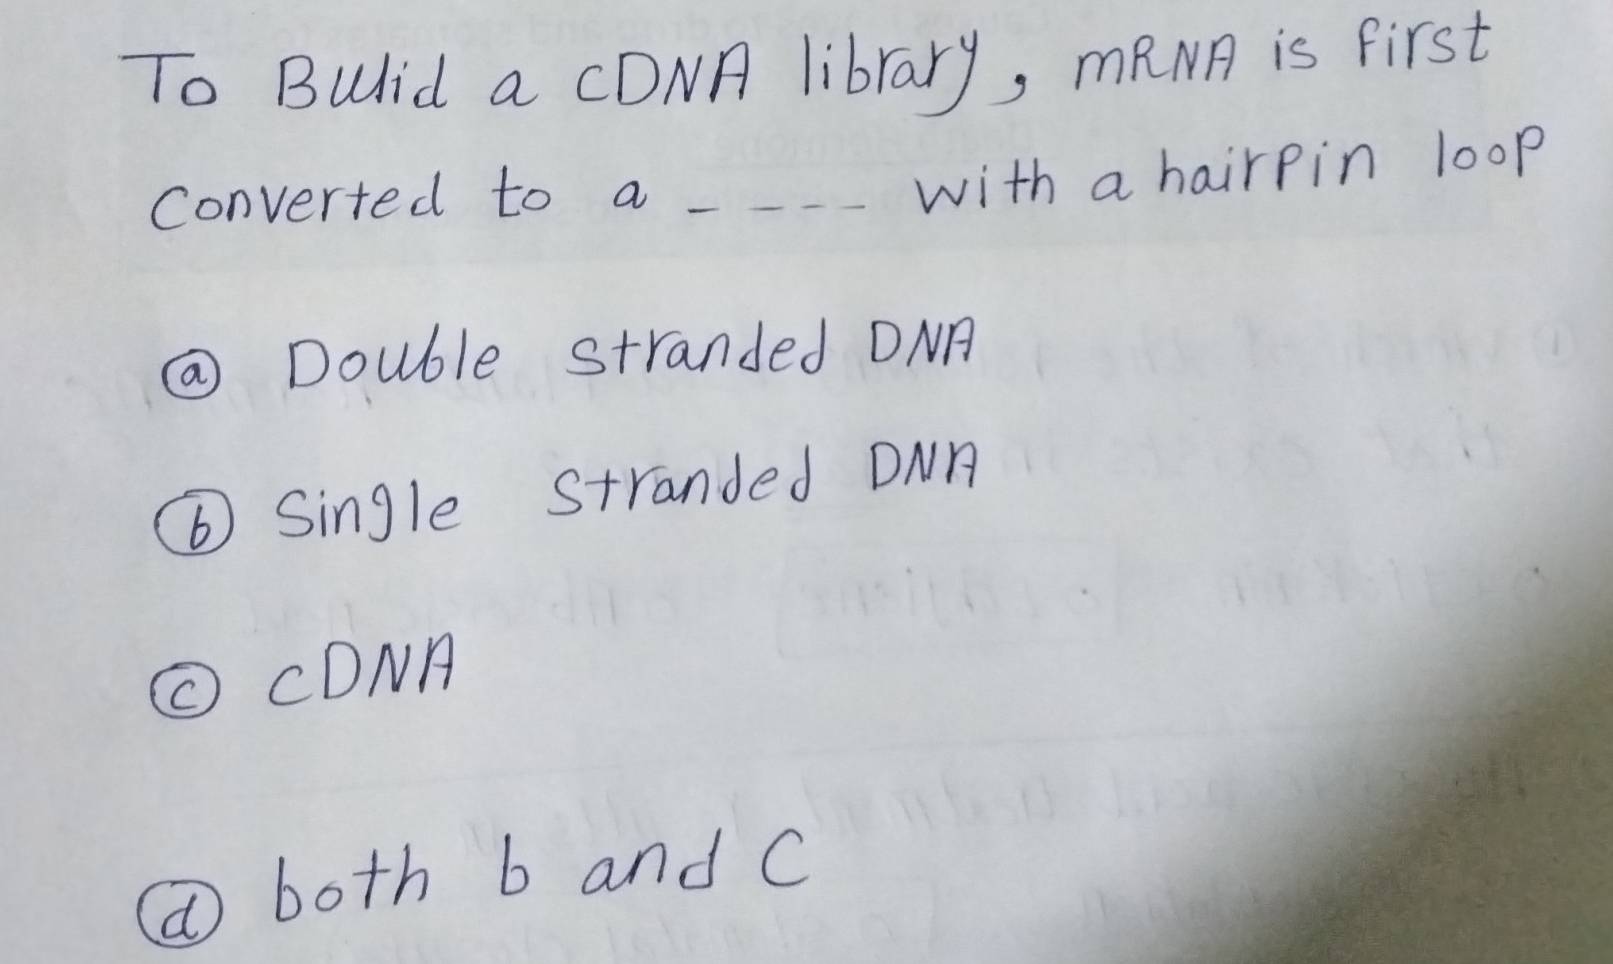 To Bulid a cDNA library, mRNA is first
converted to a ----- with a hairpin loop
ⓐ Double stranded DNA
ⓑ Single stranded DNA
ⓒ cDNA
ⓓ both b and c